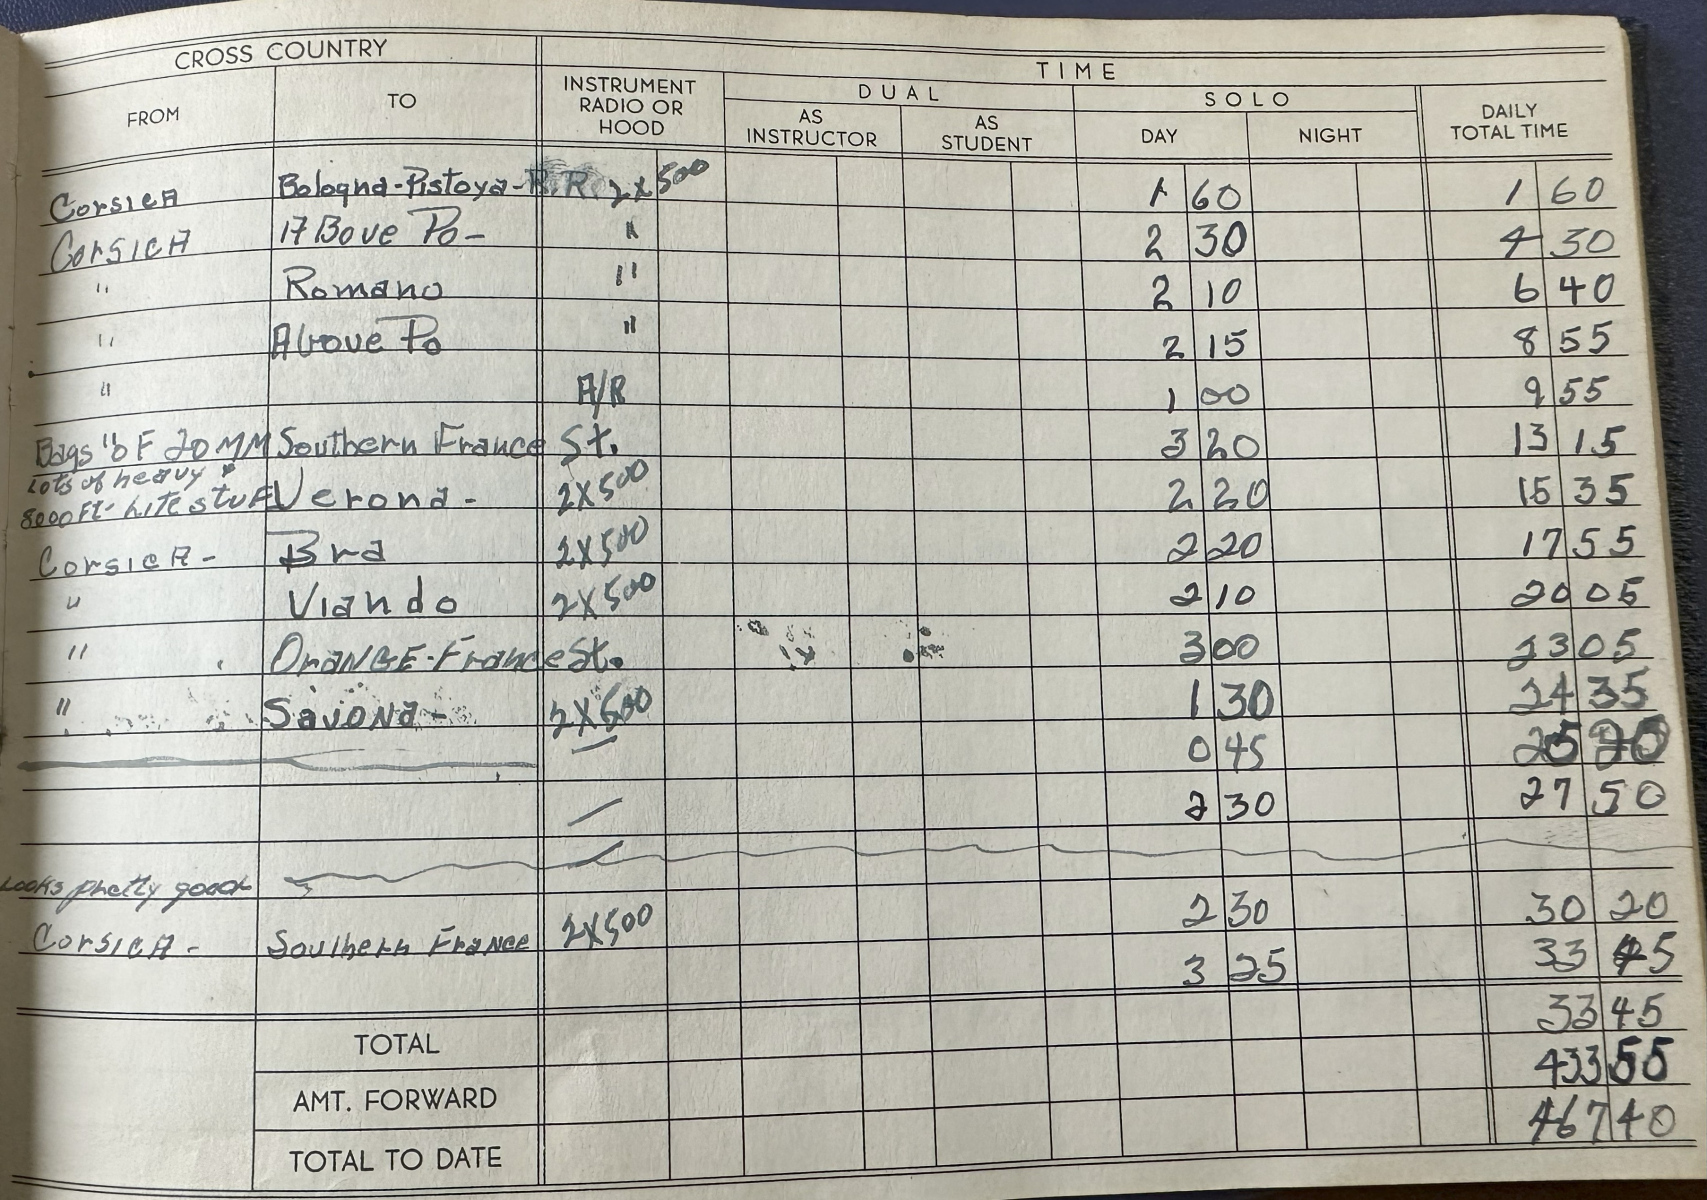 CROSS COUNTRY TIME
FROM TO INSTRUMENT RADIO OR HOOD DUAL SOLO DAILY TOTAL TIME
AS INSTRUCTOR AS STUDENT DAY NIGHT
Corsica Bologna-Pistoya-R.R. 2x500 1 60 1 60
Corsica 17 Bove Po- " 2 30 4 30
" Romano " 2 10 6 40
" Above Po " 2 15 8 55
" A/R 1 00 9 55
Bags "o F 20 MM Southern France St. 3 20 13 15
Lots of heavy
8000 Ft- Lite stuff Verona- 2x500 2 20 15 35
Corsica- Bra 2x500 2 20 17 55
" Viando 2x500 2 10 20 05
" Orange-France St. 3 00 23 05
" Savona- 2x500 1 30 24 35
0 45 25 20
2 30 27 50
Looks pretty good 2 30 30 20
Corsica- Southern France 2x500 3 25 33 45
33 45
TOTAL 433 55
AMT. FORWARD 467 40
TOTAL TO DATE